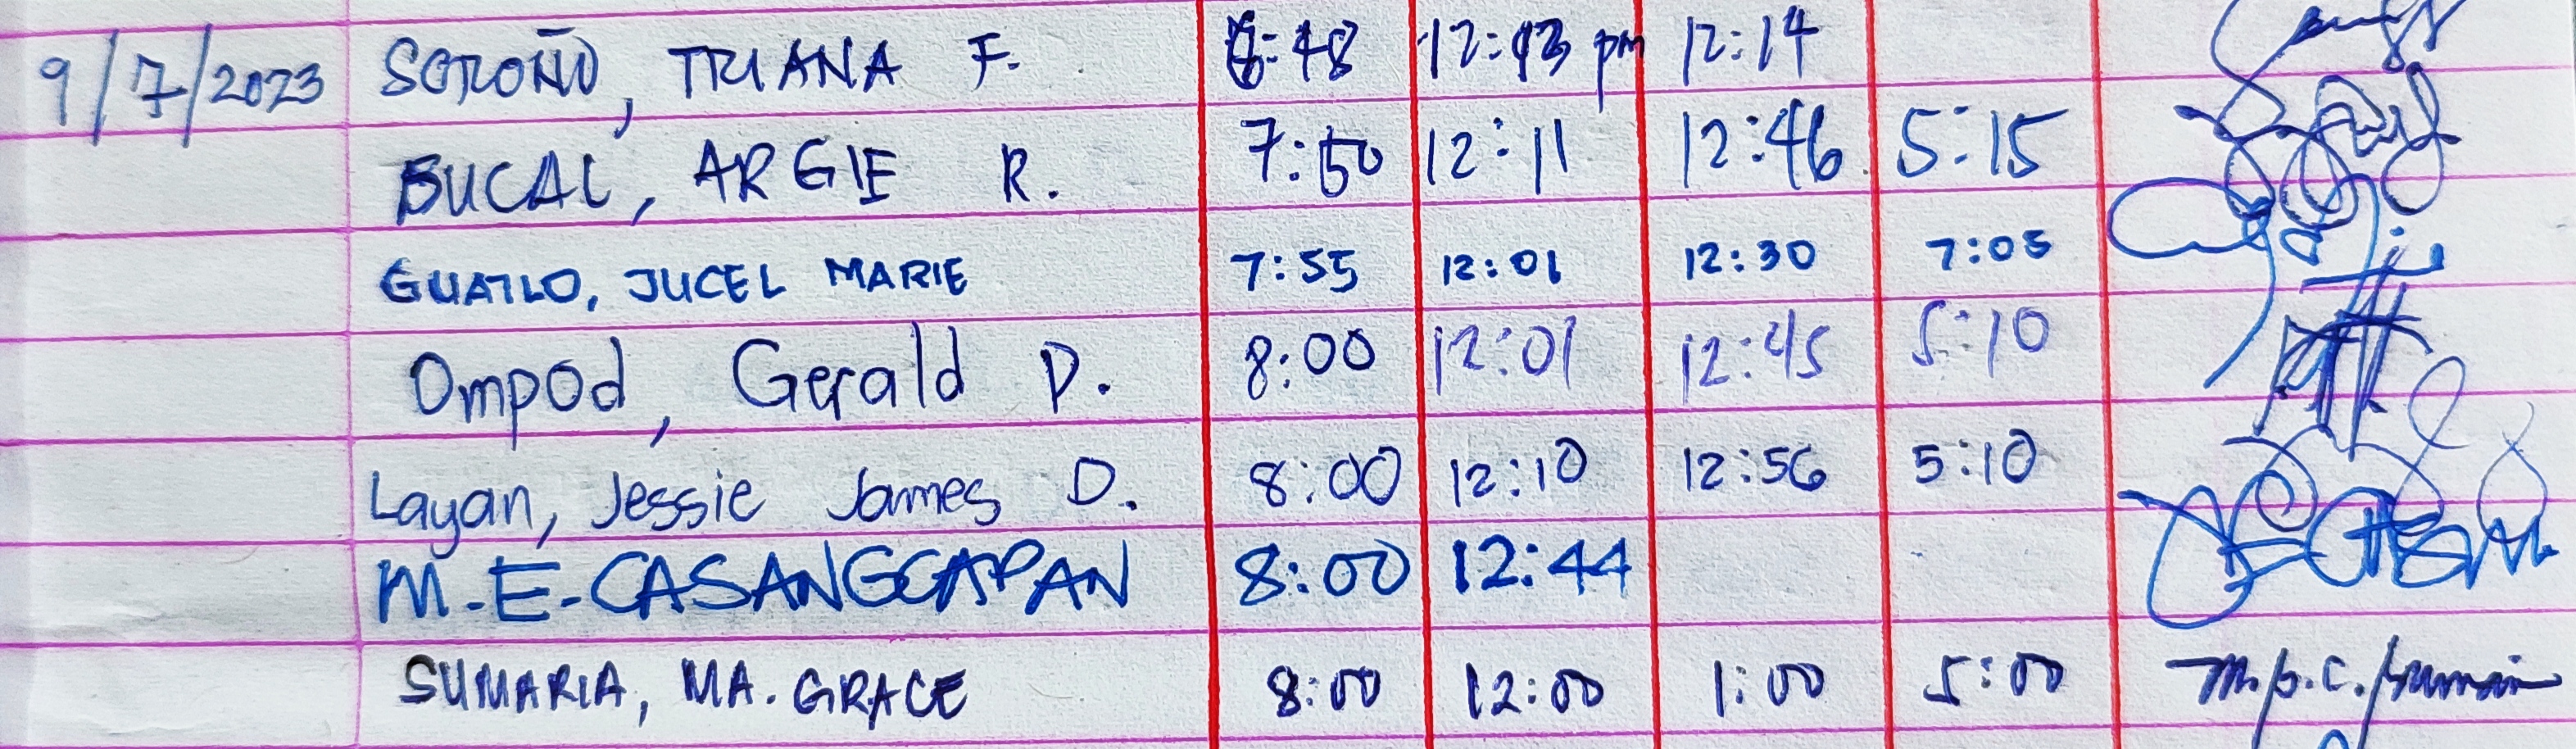 9/7/2023 SOROÑO, TRIANA F. 12:13 pm 12:14
BUCAL, ARGIE R. 7:50 12:11 12:46 5:15
GUATLO, JUCEL MARIE 7:55 12:01 12:30 7:05
Ompod, Gerald D. 8:00 12:01 12:45 5:10
Layan, Jessie James D. 8:00 12:10 12:56 5:10
M.E. CASANGCAPAN 8:00 12:44
SUMARIA, MA. GRACE 8:00 12:00 1:00 5:00